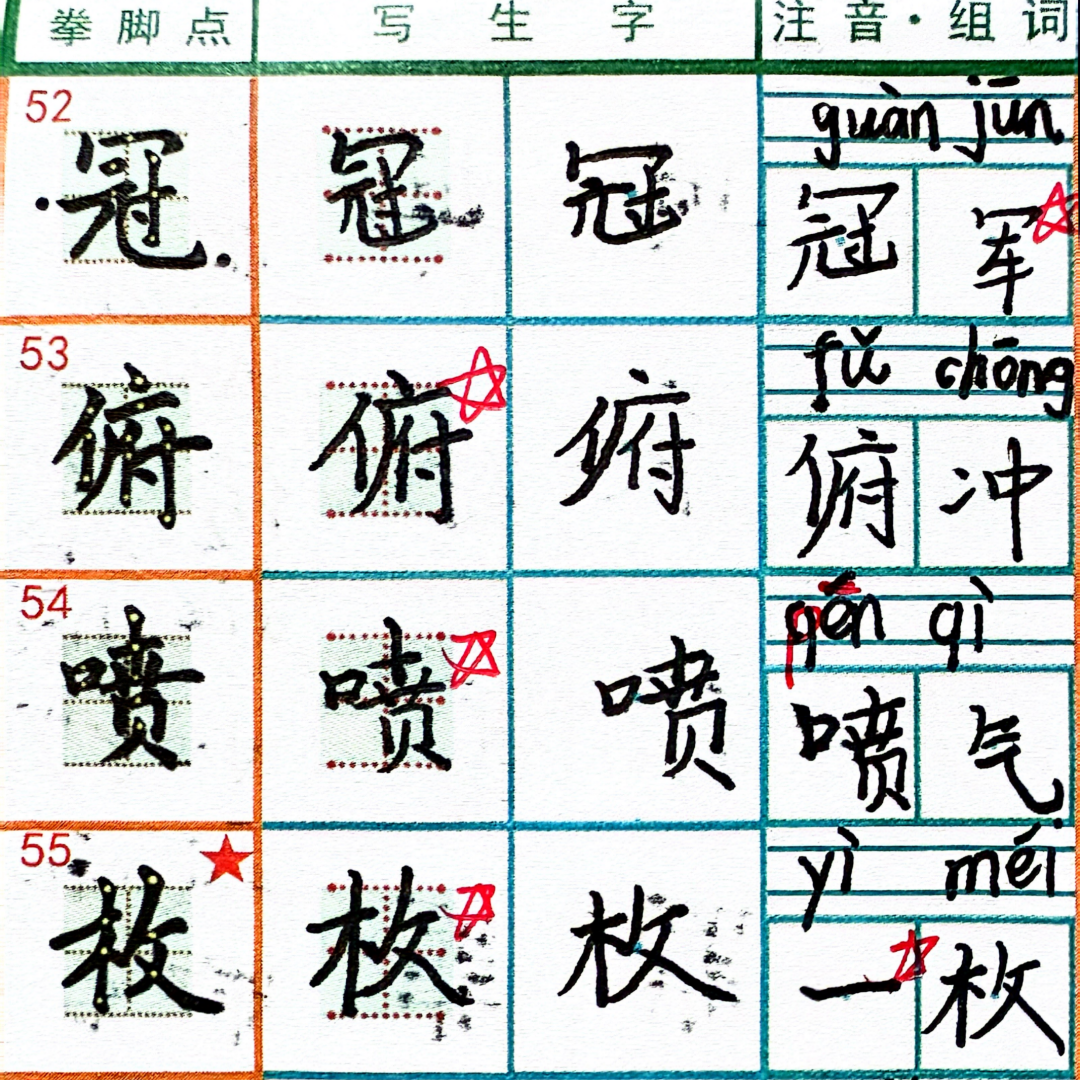 拳脚点 写生字 注音·组词
52 guàn jūn
冠 冠 冠 冠 军
53 fǔ chōng
俯 俯 俯 俯 冲
54 pēn qì
喷 喷 喷 喷 气
55 yì méi
枚 枚 枚 一 枚